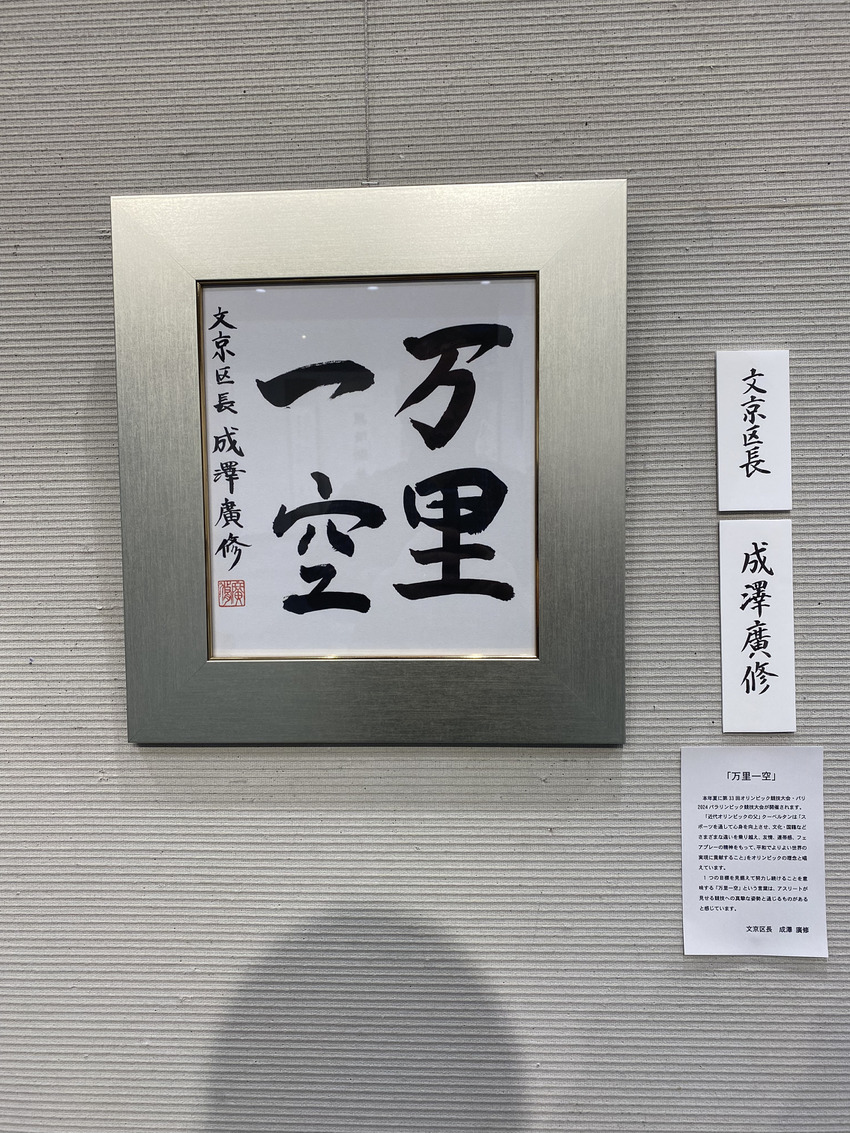 万里
一空
文京区長 成澤廣修
廣修
文京区長
成澤廣修
「万里一空」
本年夏に第33回オリンピック競技大会・パリ
2024パラリンピック競技大会が開催されます。
「近代オリンピックの父」クーベルタンは「ス
ポーツを通して心身を向上させ、文化・国籍など
さまざまな違いを乗り越え、友情、連帯感、フェ
アプレーの精神をもって、平和でよりよい世界の
実現に貢献すること」をオリンピックの理念と唱
えています。
1つの目標を見据えて努力し続けることを意
味する「万里一空」という言葉は、アスリートが
見せる競技への真摯な姿勢と通じるものがある
と感じています。
文京区長 成澤 廣修